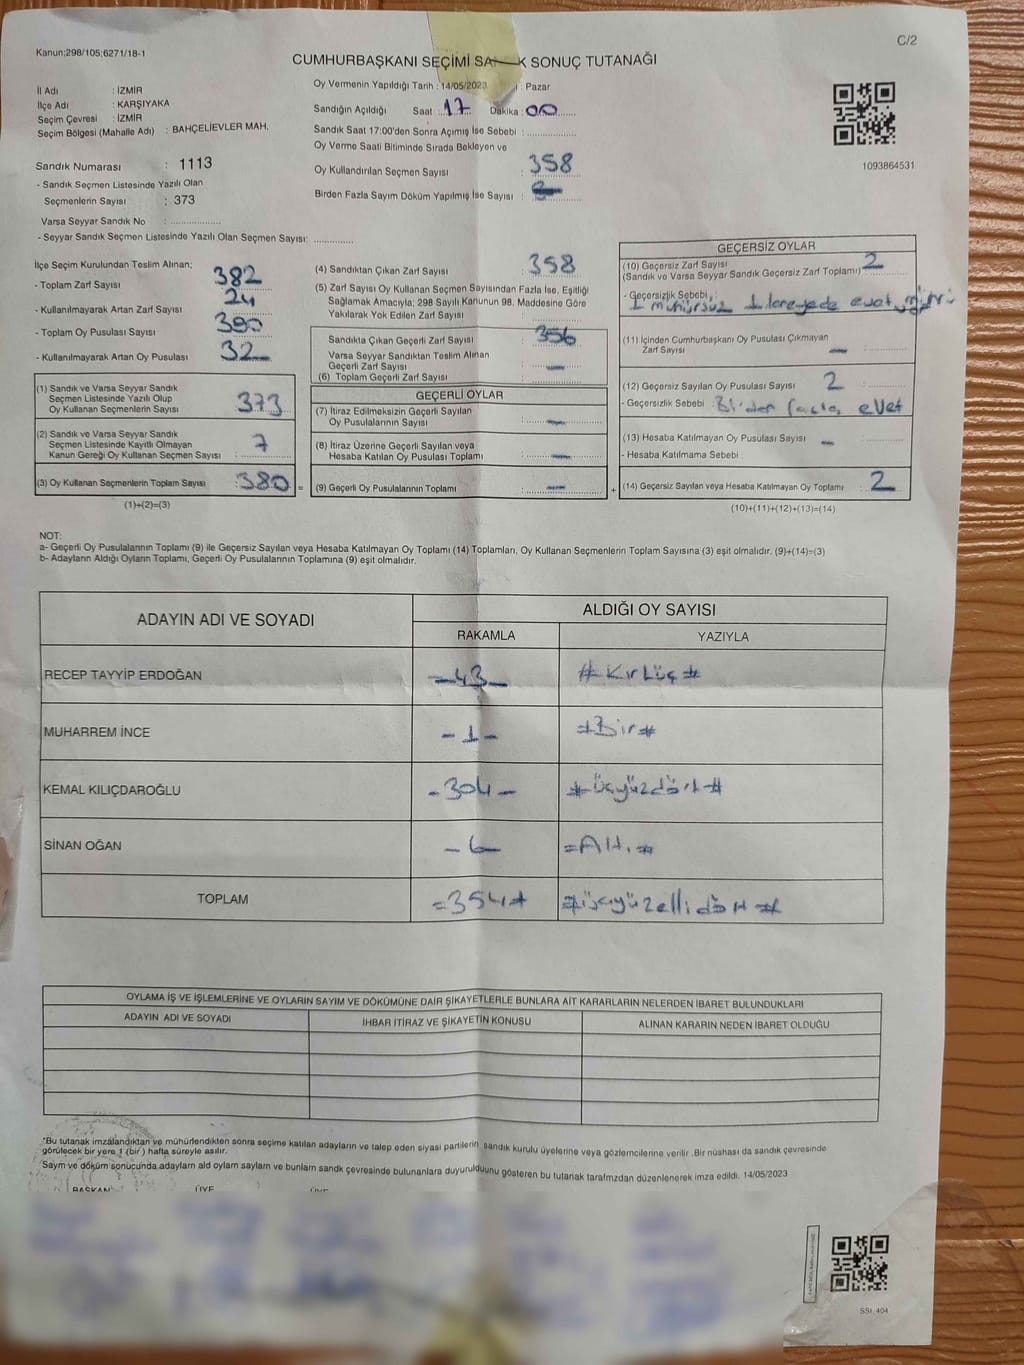 C/2
Kanun;298/105;6271/18-1
CUMHURBAŞKANI SEÇİMİ K SONUÇ TUTANAĞI
İl Adı : İZMİR
İlçe Adı : KARŞIYAKA
Seçim Çevresi : İZMİR
Seçim Bölgesi (Mahalle Adı) : BAHÇELİEVLER MAH.
Sandık Numarası : 1113
- Sandık Seçmen Listesinde Yazılı Olan
Seçmenlerin Sayısı : 373
Varsa Seyyar Sandık No :
- Seyyar Sandık Seçmen Listesinde Yazılı Olan Seçmen Sayısı:
Oy Vermenin Yapıldığı Tarih : 14/05/2023 : Pazar
Sandığın Açıldığı Saat : 17 Dakika : 00
Sandık Saat 17:00'den Sonra Açımış İse Sebebi :
Oy Verme Saati Bitiminde Sırada Bekleyen ve
Oy Kullandırılan Seçmen Sayısı : 358
Birden Fazla Sayım Döküm Yapılmış İse Sayısı :
1093864531
İlçe Seçim Kurulundan Teslim Alınan;
- Toplam Zarf Sayısı 382
- Kullanılmayarak Artan Zarf Sayısı 24
- Toplam Oy Pusulası Sayısı 390
- Kullanılmayarak Artan Oy Pusulası 32
(1) Sandık ve Varsa Seyyar Sandık
Seçmen Listesinde Yazılı Olup
Oy Kullanan Seçmenlerin Sayısı 373
(2) Sandık ve Varsa Seyyar Sandık
Seçmen Listesinde Kayıtlı Olmayan
Kanun Gereği Oy Kullanan Seçmen Sayısı : 7
(3) Oy Kullanan Seçmenlerin Toplam Sayısı : 380 =
(1)+(2)=(3)
(4) Sandıktan Çıkan Zarf Sayısı : 358
(5) Zarf Sayısı Oy Kullanan Seçmen Sayısından Fazla İse, Eşitliği
Sağlamak Amacıyla; 298 Sayılı Kanunun 98. Maddesine Göre
Yakılarak Yok Edilen Zarf Sayısı :
Sandıkta Çıkan Geçerli Zarf Sayısı : 356
Varsa Seyyar Sandıktan Teslim Alınan
Geçerli Zarf Sayısı : —
(6) Toplam Geçerli Zarf Sayısı :
GEÇERLİ OYLAR
(7) İtiraz Edilmeksizin Geçerli Sayılan
Oy Pusulalarının Sayısı : —
(8) İtiraz Üzerine Geçerli Sayılan veya
Hesaba Katılan Oy Pusulası Toplamı : —
(9) Geçerli Oy Pusulalarının Toplamı : — +
GEÇERSİZ OYLAR
(10) Geçersiz Zarf Sayısı 2
(Sandık ve Varsa Seyyar Sandık Geçersiz Zarf Toplamı)
- Geçersizlik Sebebi : 1 mühürsüz 1 evet
(11) İçinden Cumhurbaşkanı Oy Pusulası Çıkmayan
Zarf Sayısı — :
(12) Geçersiz Sayılan Oy Pusulası Sayısı 2 :
- Geçersizlik Sebebi : Birden fazla evet
(13) Hesaba Katılmayan Oy Pusulası Sayısı — :
- Hesaba Katılmama Sebebi :
(14) Geçersiz Sayılan veya Hesaba Katılmayan Oy Toplamı : 2
(10)+(11)+(12)+(13)=(14)
NOT:
a- Geçerli Oy Pusulalarının Toplamı (9) ile Geçersiz Sayılan veya Hesaba Katılmayan Oy Toplamı (14) Toplamları, Oy Kullanan Seçmenlerin Toplam Sayısına (3) eşit olmalıdır. (9)+(14)=(3)
b- Adayların Aldığı Oyların Toplamı, Geçerli Oy Pusulalarının Toplamına (9) eşit olmalıdır.
ADAYIN ADI VE SOYADI ALDIĞI OY SAYISI
RAKAMLA YAZIYLA
RECEP TAYYİP ERDOĞAN -43- # Kırküç #
MUHARREM İNCE -1- #Bir#
KEMAL KILIÇDAROĞLU -304- #Üçyüzdört#
SİNAN OĞAN -6- =Altı#
TOPLAM =354# #Üçyüzellidört#
OYLAMA İŞ VE İŞLEMLERİNE VE OYLARIN SAYIM VE DÖKÜMÜNE DAİR ŞİKAYETLERLE BUNLARA AİT KARARLARIN NELERDEN İBARET BULUNDUKLARI
ADAYIN ADI VE SOYADI İHBAR İTİRAZ VE ŞİKAYETİN KONUSU ALINAN KARARIN NEDEN İBARET OLDUĞU
*Bu tutanak imzalandıktan ve mühürlendikten sonra seçime katılan adayların ve talep eden siyasi partilerin, sandık kurulu üyelerine veya gözlemcilerine verilir .Bir nüshası da sandık çevresinde
görülecek bir yere 1 (bir ) hafta süreyle asılır.
Sayım ve döküm sonucunda adayların ald oyların sayların ve bunların sandk çevresinde bulunanlara duyurulduunu gösteren bu tutanak tarafmzdan düzenlenerek imza edildi. 14/05/2023
BAŞKAN ÜYE ÜYE
SSI, 404